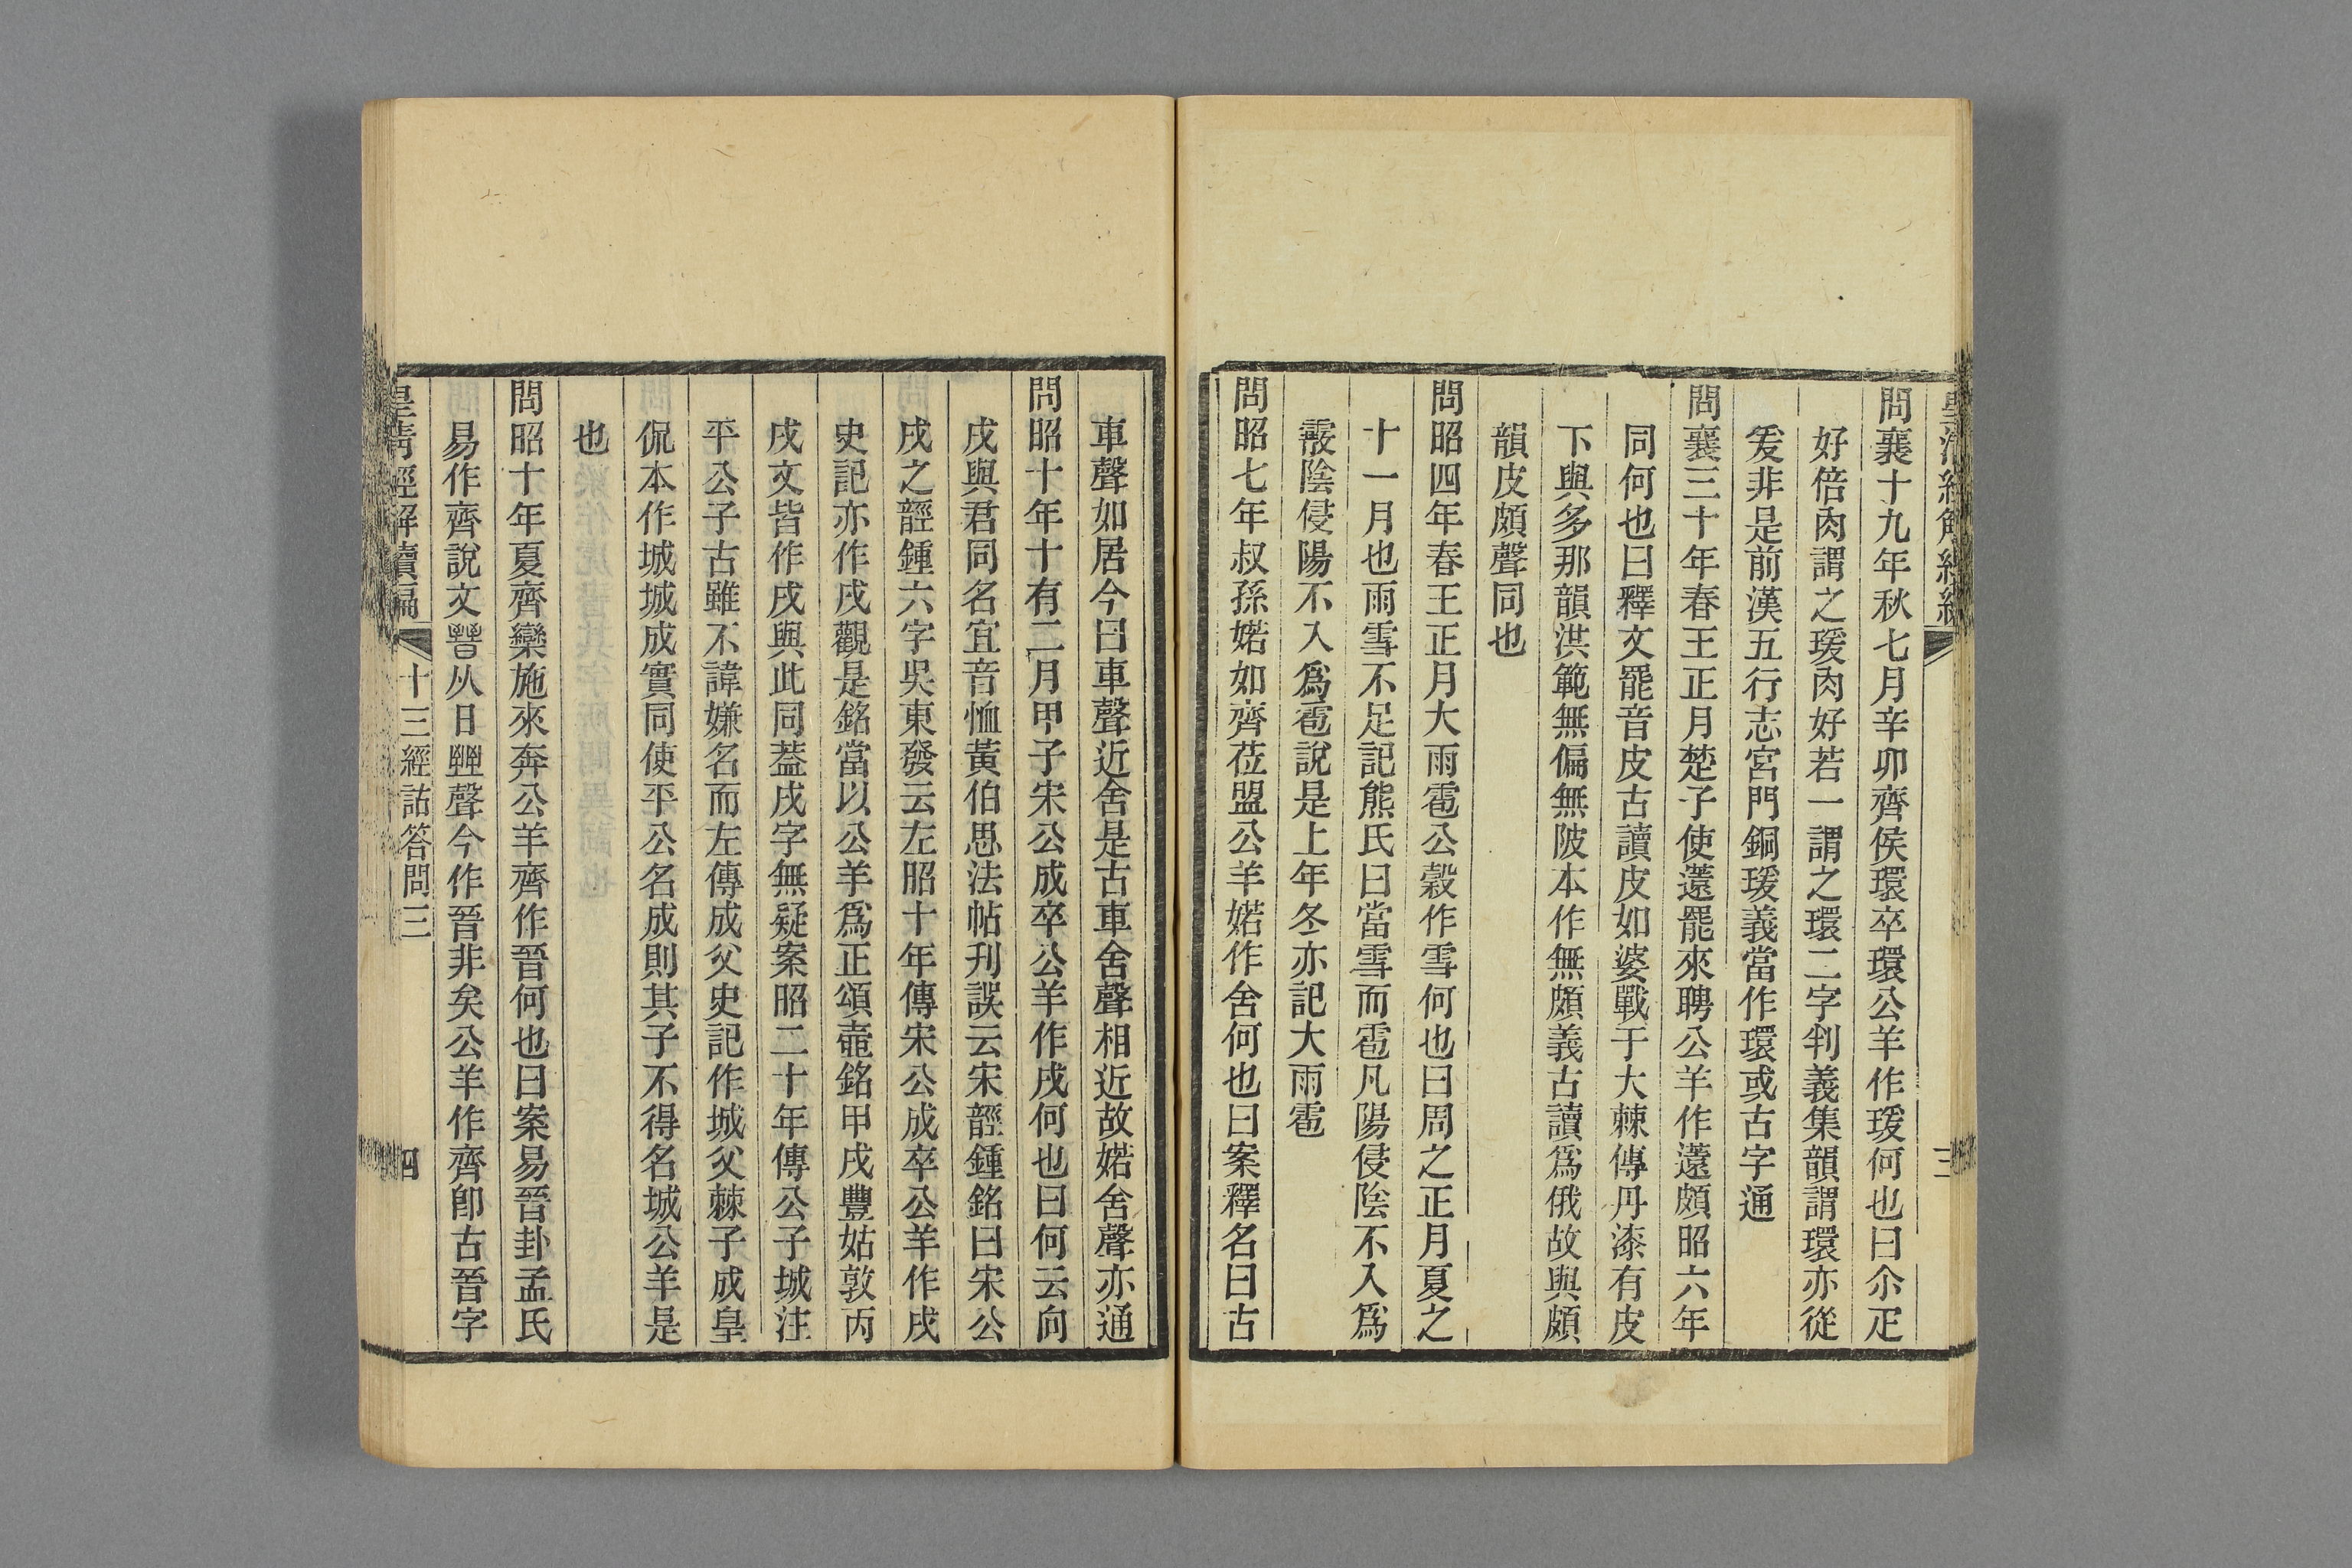 問襄十九年秋七月辛卯齊侯環卒環公羊作瑗何也曰尒疋
好倍肉謂之瑗肉好若一謂之環二字判義集韻謂環亦從
爰非是前漢五行志宮門銅瑗義當作環或古字通
問襄三十年春王正月楚子使薳罷來聘公羊作薳頗昭六年
同何也曰釋文罷音皮古讀皮如婆戰于大棘傳丹漆有皮
下與多那韻洪範無偏無陂本作無頗義古讀爲俄故與頗
韻皮頗聲同也
問昭四年春王正月大雨雹公穀作雪何也曰周之正月夏之
十一月也雨雪不足記熊氏曰當雪而雹凡陽侵陰不入爲
霰陰侵陽不入爲雹說是上年冬亦記大雨雹
問昭七年叔孫婼如齊莅盟公羊婼作舍何也曰案釋名曰古
三
車聲如居今曰車聲近舍是古車舍聲相近故婼舍聲亦通
問昭十年十有二月甲子宋公成卒公羊作戌何也曰何云向
戌與君同名宜音恤黃伯思法帖刊誤云宋䪫鍾銘曰宋公
戌之䪫鍾六字吳東發云左昭十年傳宋公成卒公羊作戌
史記亦作戌觀是銘當以公羊爲正頌壷銘甲戌豐姑敦丙
戌文皆作戌與此同葢戌字無疑案昭二十年傳公子城注
平公子古雖不諱嫌名而左傳成父史記作城父棘子成皇
侃本作城城成實同使平公名成則其子不得名城公羊是
也
問昭十年夏齊欒施來奔公羊齊作晉何也曰案易晉卦孟氏
易作齊說文㬜从日臸聲今作晉非矣公羊作齊卽古晉字
皇清經解續編
十三經詁答問三
四